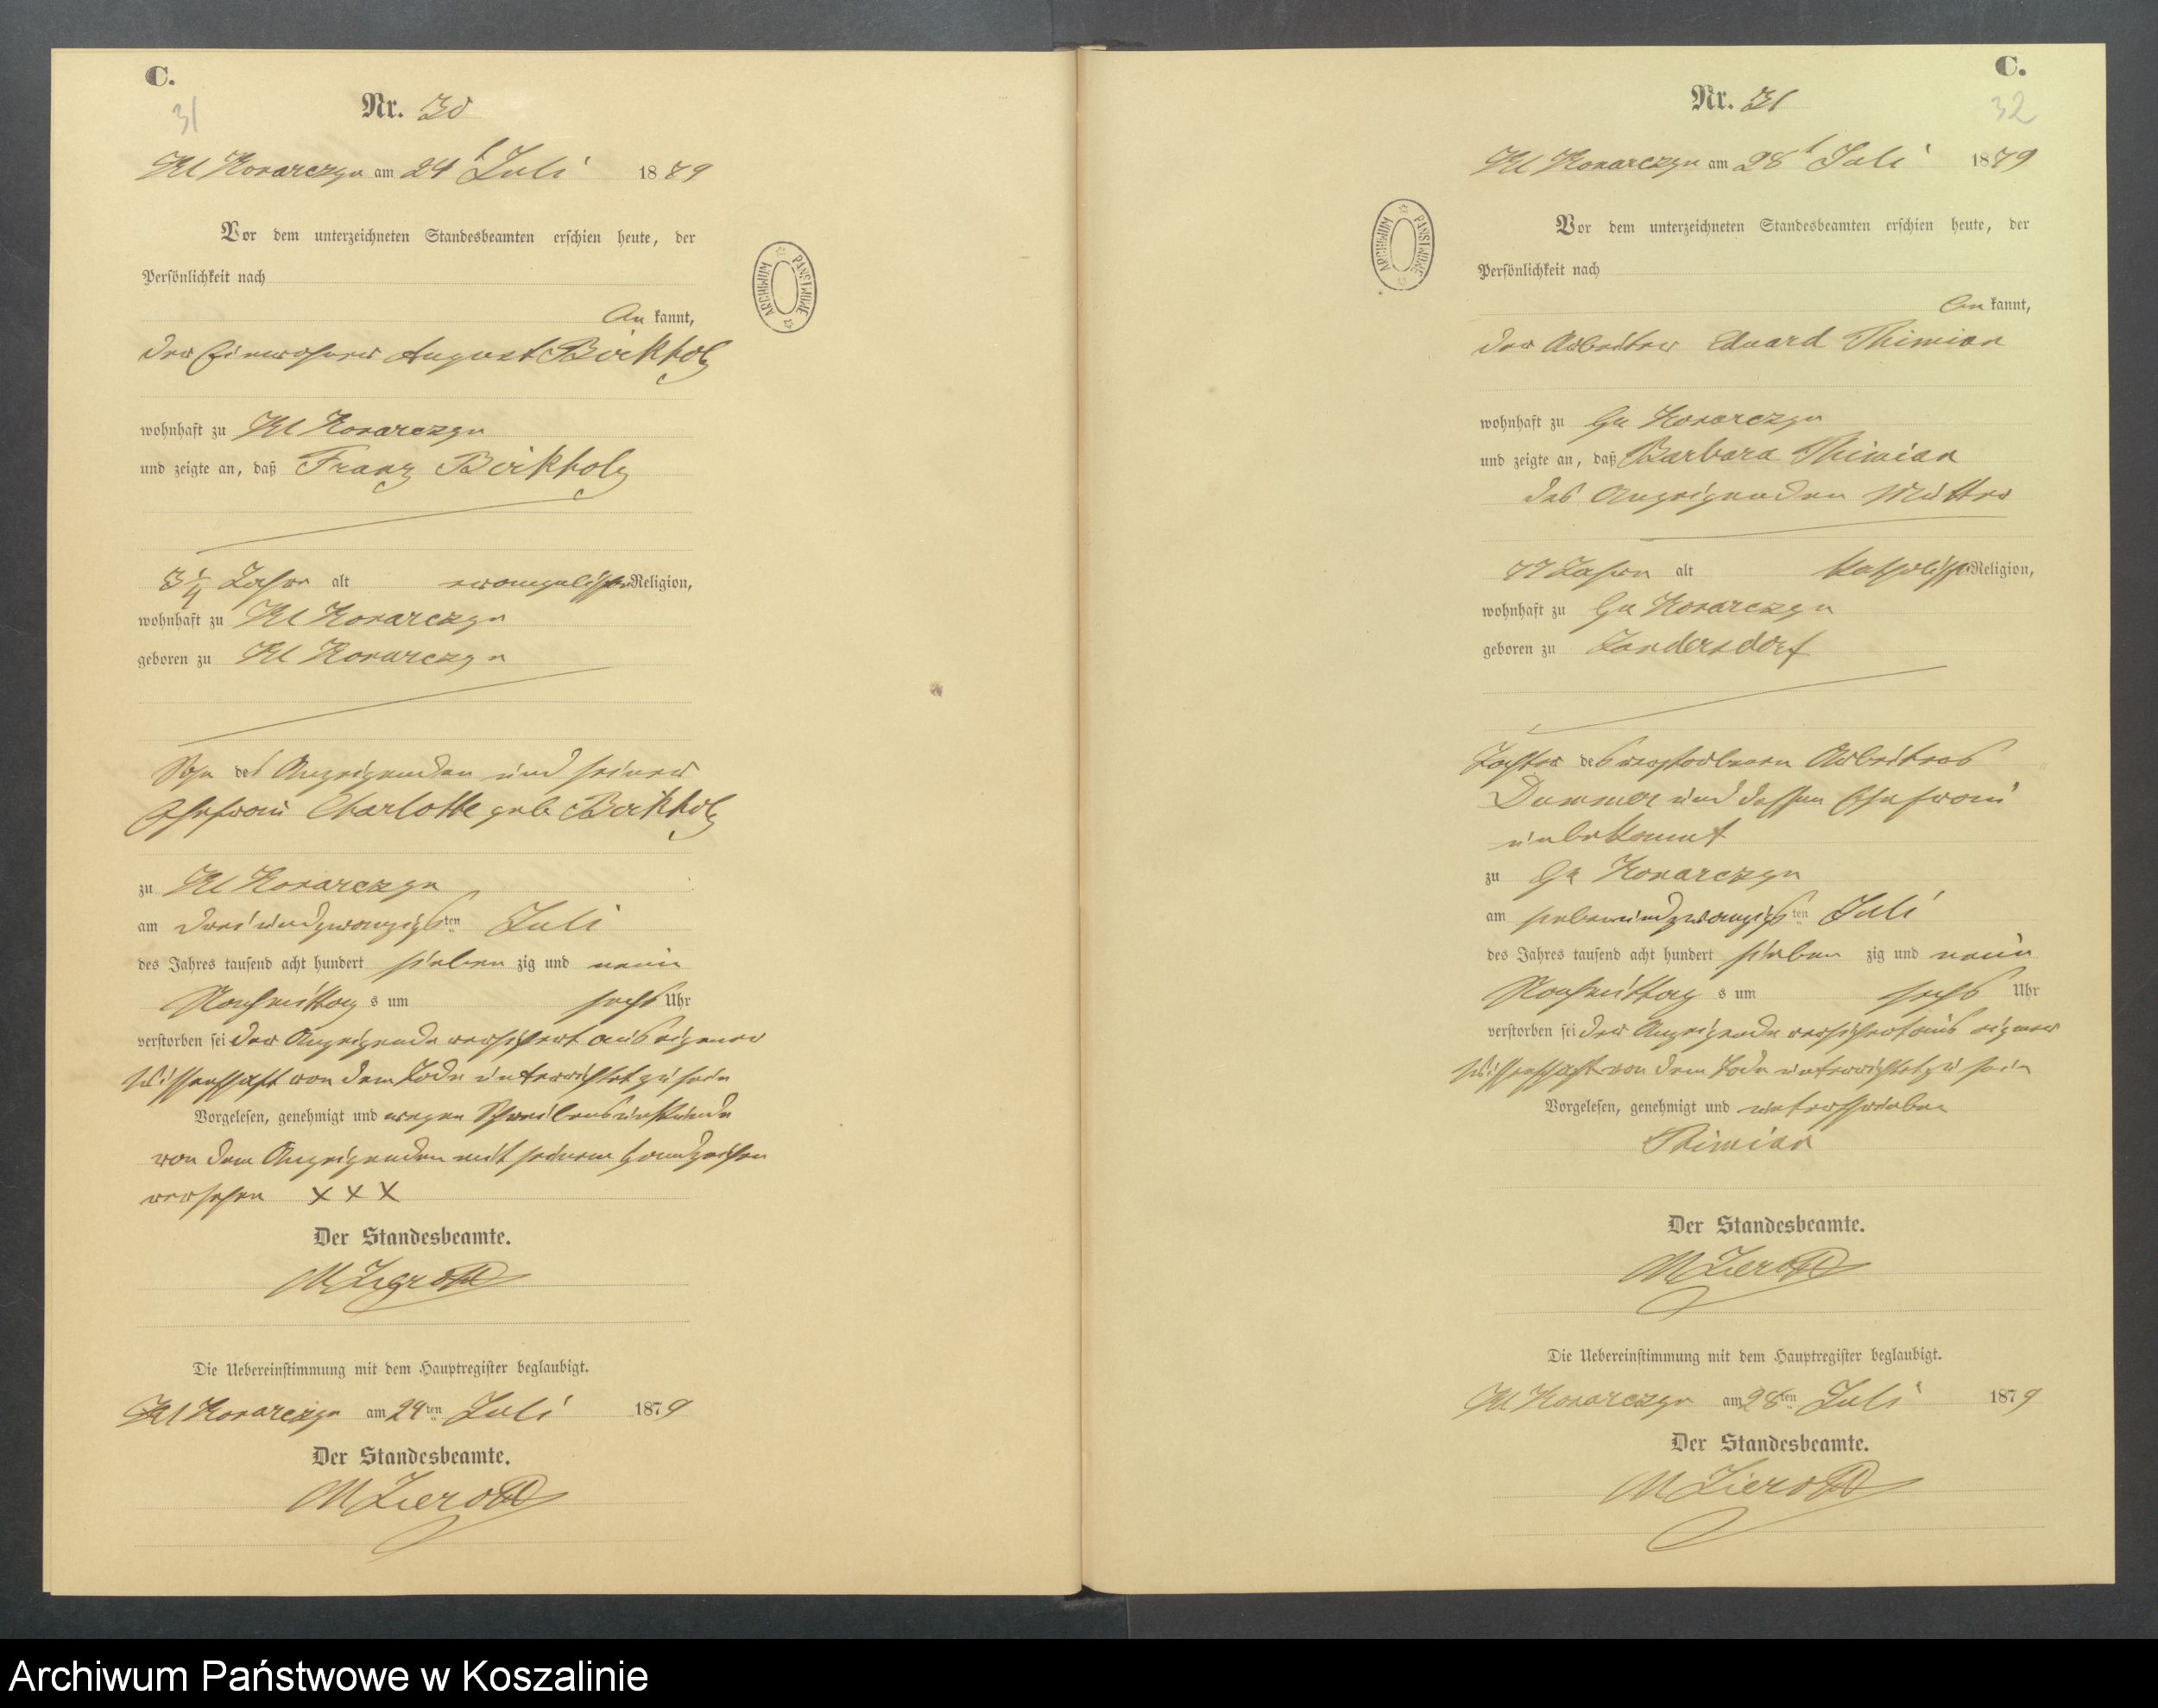 C.
31
Nr. 30
Kl Konarczyn am 24t Juli 1879
Vor dem unterzeichneten Standesbeamten erschien heute, der
Persönlichkeit nach
kannt,
der Einwohner August Birkholz
wohnhaft zu Kl Konarczyn
und zeigte an, daß Franz Birkholz
3 1/4 Jahre alt evangelischer Religion,
wohnhaft zu Kl Konarczyn
geboren zu Kl Konarczyn
Sohn des Anzeigenden und seiner
Ehefrau Charlotte geb Birkholz
zu Kl Konarczyn
am drei und zwanzigsten Juli
des Jahres tausend acht hundert sieben zig und neun
Nachmittags um sechs Uhr
verstorben sei der Anzeigende versichert aus eigener
Wissenschaft von dem Tode unterrichtet zu sein
Vorgelesen, genehmigt und wegen Schreibensunkunde
von dem Anzeigenden mit seinem Handzeichen
versehen x x x
Der Standesbeamte.
M Zierott
Die Uebereinstimmung mit dem Hauptregister beglaubigt.
Kl Konarczyn am 24ten Juli 1879
Der Standesbeamte.
M Zierott
C.
32
Nr. 31
Kl Konarczyn am 28t Juli 1879
Vor dem unterzeichneten Standesbeamten erschien heute, der
Persönlichkeit nach
kannt,
der Arbeiter Eduard Thimian
wohnhaft zu Gr Konarczyn
und zeigte an, daß Barbara Thimian
des Anzeigenden Mutter
77 Jahre alt katholischer Religion,
wohnhaft zu Gr Konarczyn
geboren zu Zandersdorf
Tochter des verstorbenen Arbeiters
und dessen Ehefrau
unbekannt
zu Gr Konarczyn
am siebenundzwanzigsten Juli
des Jahres tausend acht hundert sieben zig und neun
Nachmittags um sechs Uhr
verstorben sei der Anzeigende versichert aus eigener
Wissenschaft von dem Tode unterrichtet zu sein
Vorgelesen, genehmigt und unterschrieben
Thimian
Der Standesbeamte.
M Zierott
Die Uebereinstimmung mit dem Hauptregister beglaubigt.
Kl Konarczyn am 28ten Juli 1879
Der Standesbeamte.
M Zierott
ARCHIWUM PAŃSTWOWE
ARCHIWUM PAŃSTWOWE
Archiwum Państwowe w Koszalinie